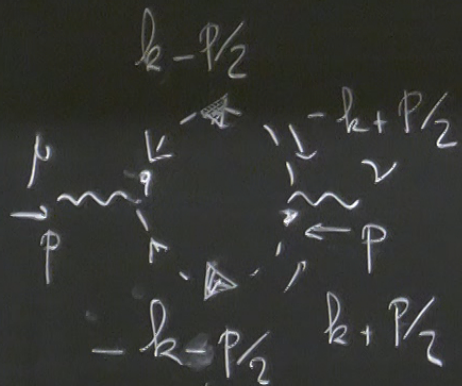 k - P/2
- k + P/2
μ
ν
P
P
- k - P/2
k + P/2